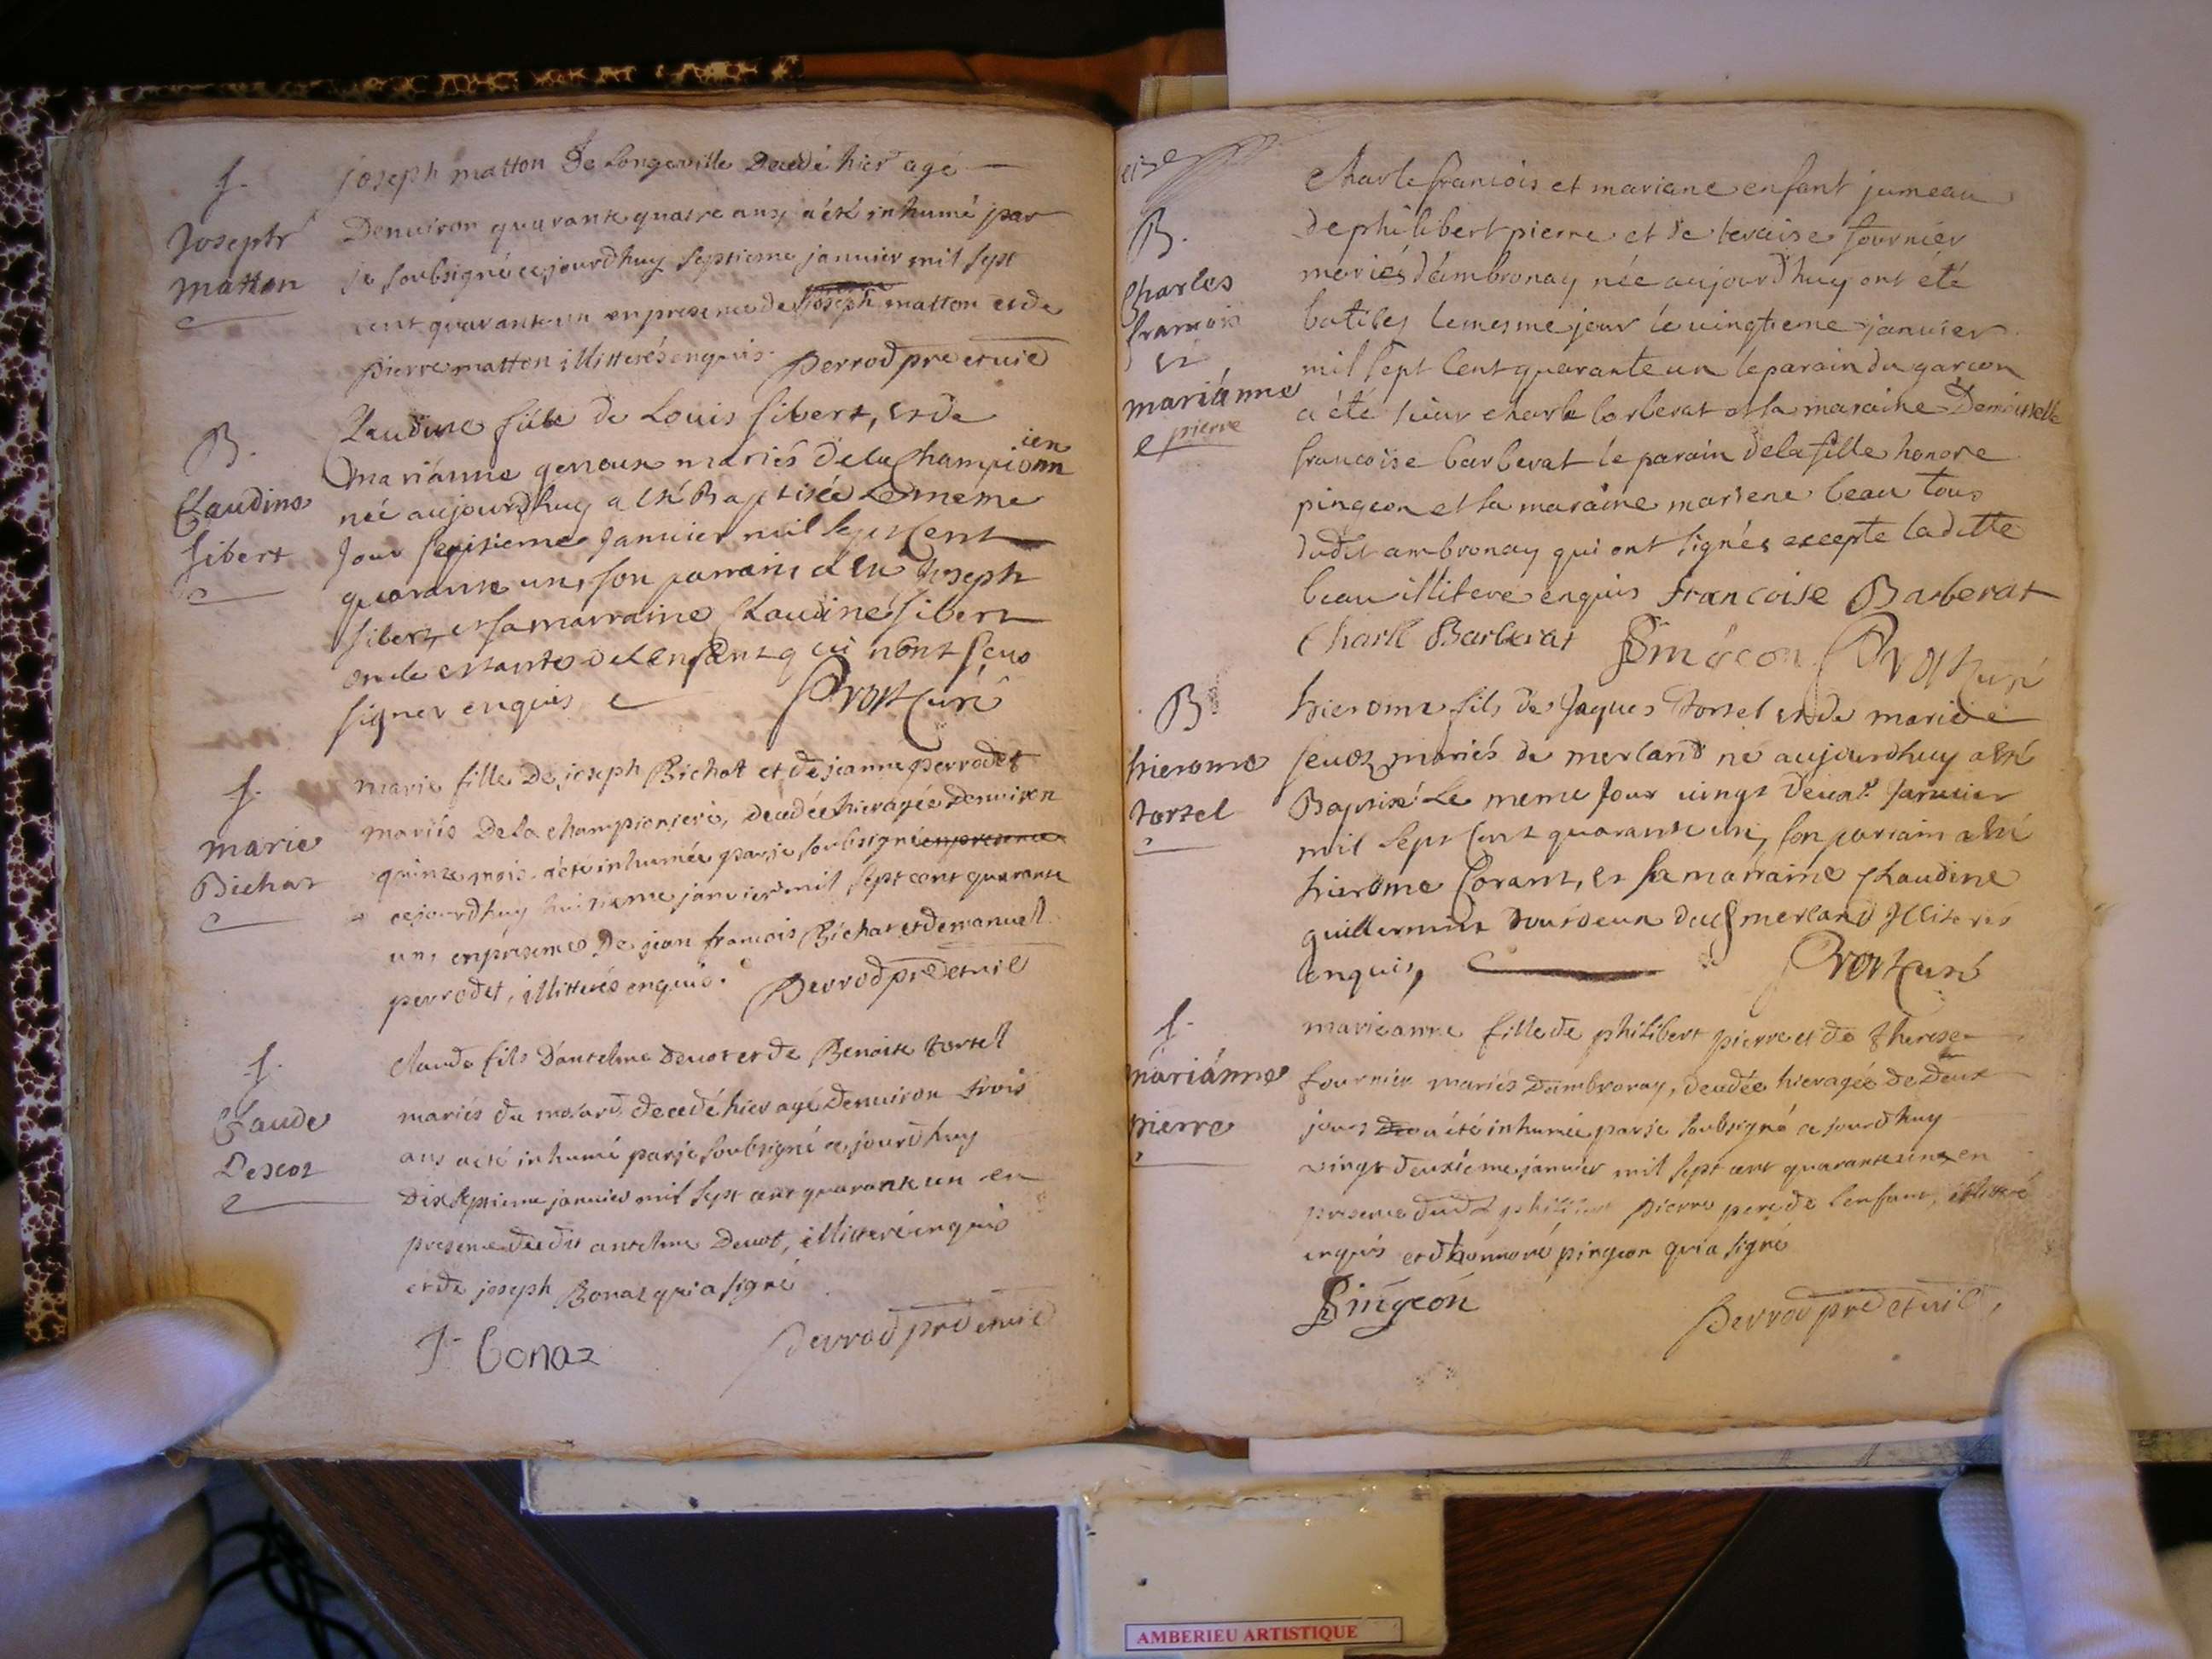 f.
Joseph
matton
joseph matton de longeville decedé hier agé
denuiron quarante quatre ans, a été inhumé par
je soubsigné cejourdhuy septieme januier mil sept
cent quarante un en presence de joseph matton et de
pierre matton illitterés enquis. Perrod pre et vic
B.
Claudine
sibert
Claudine fille de Louis sibert, et de
marianne genoux mariés de la Champion
ien
née aujourdhuy a été Baptisée Le meme
Jour Januier mil sept Cent
quarante un, son parrain a été Joseph
sibert, et sa marraine Claudine sibert
oncle et tante de Lenfant qui n'ont sçus
signer enquis Prost Curé
f.
marie
Bichat
marie fille de joseph Bichat et de jeanne perrodet
mariés de la championiere, decedée hier agée denuiron
quinze mois, a été inhumée par je soubsigné en presence
cejourdhuy huitieme januier mil sept cent quarante
un, en presence de jean francois Bichat et demanuel
perrodet, illitterés enquis. Perrod pre et vic
f.
Claude
Descot
claude fils d'antelme deuot et de Benoite tortel
mariés du molard decedé hier agé denuiron trois
ans a été inhumé par je soubsigné cejourdhuy
dix septieme januier mil sept cent quarante un en
presence dudit antelme Deuot, illitteré enquis
et de joseph Bonaz qui a signé
J. bonaz Perrod pre et vic
B.
Charles
francois
et
marianne
pierre
Charle francois et mariane enfant jumeau
de philibert pierre et de teraise fournier
mariés d'ambronay née aujourd'huy ont été
batises le mesme jour le uingtieme januier
mil sept cent quarante un le parain du garcon
a été sieur charle barberat et la maraine Demoiselle
francoise barberat le parain de la fille honore
pingeon et la maraine mariene beau tous
dudit ambronay qui ont signés excepte laditte
beau illitere enquis francoise Barberat
Charle Barberat Prost Curé
B
hierome
tortel
hierome fils de Jaques tortel et de marie
mariés de merland né aujourdhuy a été
Baptisé Le meme Jour uingt deux.e Januier
mil sept Cent quarante un, son parrain a été
hierome Corant, et sa marraine Claudine
guillermin tous deux dud merland Illiterés
enquis, Prost Curé
f.
marianne
pierre
marieanne fille de philibert pierre et de therese
fournier mariés dambronay, decedée hier agée de deux
jours a été inhumée par je soubsigné cejourdhuy
vingt deuxieme januier mil sept cent quarante un, en
presence dudit philibert pierre pere de lenfant, illitteré
enquis et d'honnoré pingeon qui a signé
Pingeon Perrod pre et vic
AMBERIEU ARTISTIQUE